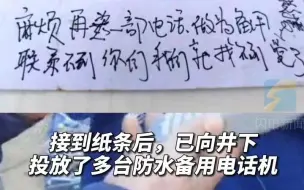 麻烦再放一部电话做为备用
联系不到你们我们就找不到
接到纸条后，已向井下
投放了多台防水备用电话机